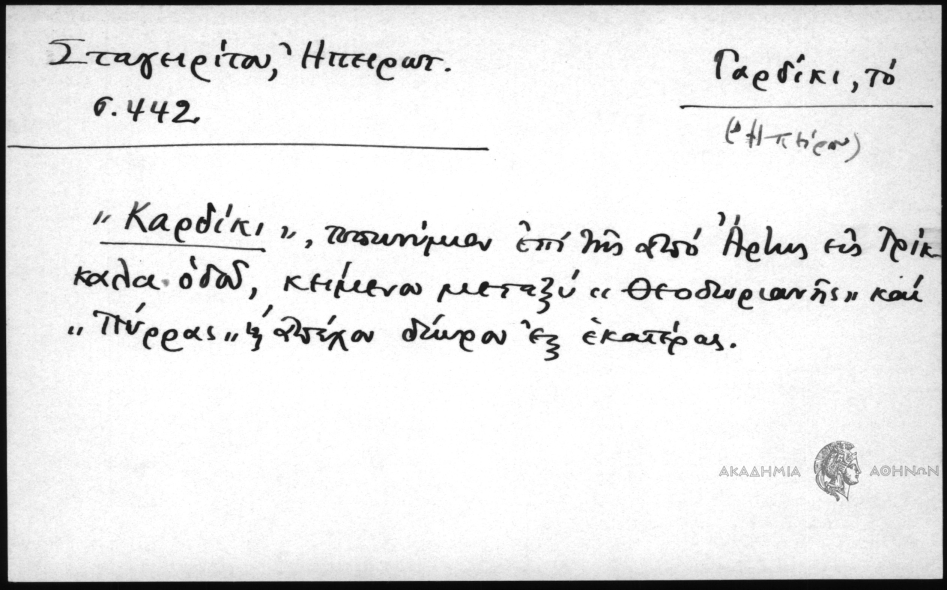 Σταγειρίτου, Ἠπειρωτ.
σ. 442.
Γαρδίκι, τό
(Ἠπείρου)
"Καρδίκι", τοπωνύμιον ἐπί τῆς ἀπό Ἄρτης εἰς Τρίκ-
καλα ὁδοῦ, κείμενον μεταξύ "Θεοδωριανῆς" καί
"Πύρρας" ἀπέχον δίωρον ἐξ ἑκατέρας.
ΑΚΑΔΗΜΙΑ ΑΘΗΝΩΝ